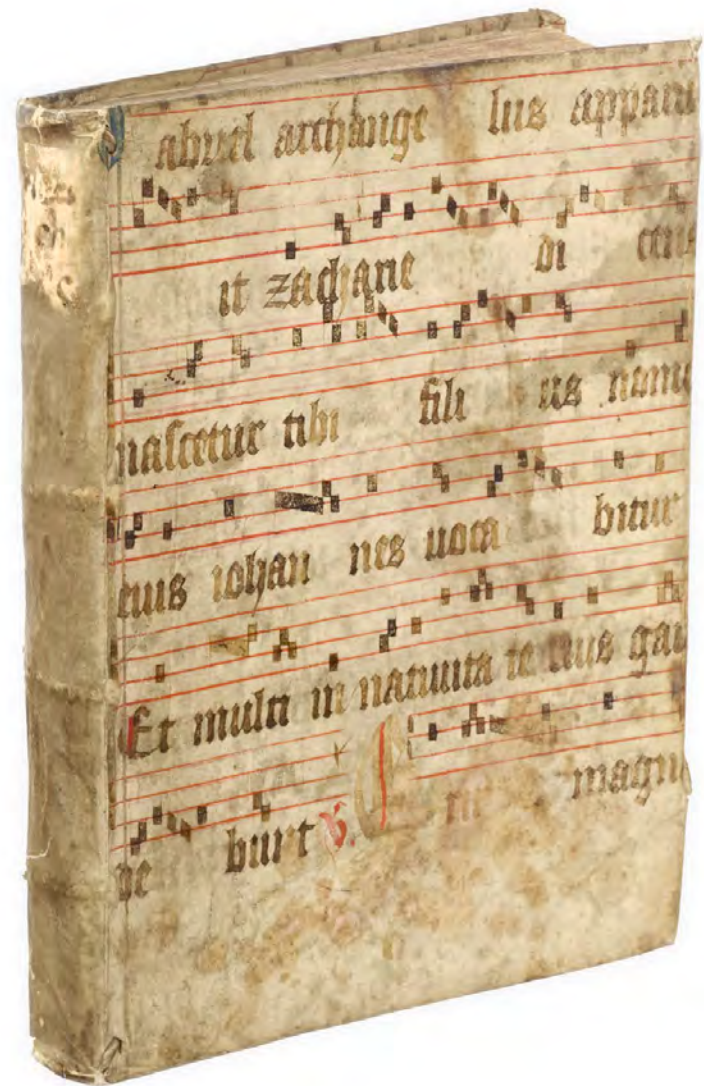 abriel archange lus apparu
it zacharie di cens
nascetur tibi fili us nome
eius iohan nes uoca bitur
Et multi in natiuita te eius gau
de bunt V. E magn